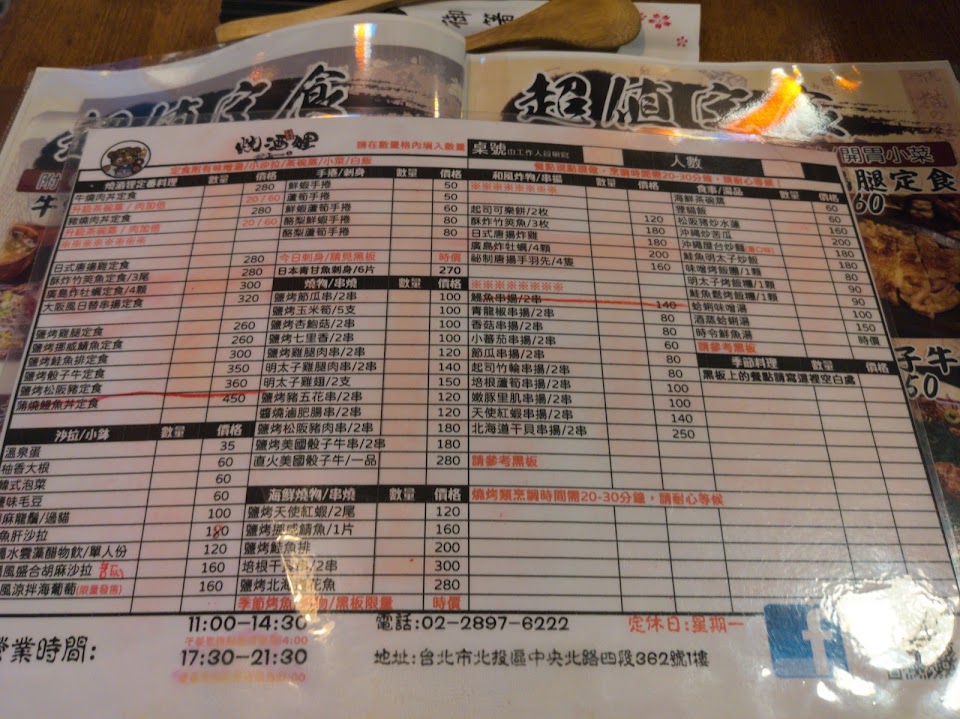 御箸
超值定食
超值定食
開胃小菜
腿定食
60
燒酒狸
請在數量格內填入數量
桌號
人數
定食附有味噌湯/小沙拉/茶碗蒸/小菜/白飯
燒酒狸定番料理 數量 價格
牛燒肉丼定食 280
升級茶碗蒸 / 肉加倍 20 / 60
豬燒肉丼定食 280
升級茶碗蒸 / 肉加倍 20 / 60
※※※※※※※
日式唐揚雞定食 280
酥炸竹筴魚定食/3尾 280
廣島炸牡蠣定食/4顆 300
大阪風日替串揚定食 320
鹽烤雞腿定食 260
鹽烤挪威鯖魚定食 260
鹽烤鮭魚排定食 300
鹽烤骰子牛定食 350
鹽烤松阪豬定食 360
蒲燒鰻魚丼定食 450
沙拉/小鉢 數量 價格
溫泉蛋 35
柚香大根 60
韓式泡菜 60
鹽味毛豆 60
麻龍鬚/過貓 100
魚肝沙拉
水雲藻醋物飲/單人份 120
風盛合胡麻沙拉 160
風涼拌海葡萄(限量發售) 160
手捲/刺身 數量 價格
鮮蝦手捲 50
蘆筍手捲 50
鮮蝦蘆筍手捲 60
酪梨鮮蝦手捲 80
酪梨蘆筍手捲 80
今日刺身/請見黑板 時價
日本青甘魚刺身/6片 270
燒物/串燒 數量 價格
鹽烤節瓜串/2串 100
鹽烤玉米筍/5支 100
鹽烤杏鮑菇/2串 100
鹽烤七里香/2串 100
鹽烤雞腿肉串/2串 120
明太子雞腿肉串/2串 140
明太子雞翅/2支 150
鹽烤豬五花串/2串 120
醬燒滷肥腸串/2串 120
鹽烤松阪豬肉串/2串 180
鹽烤美國骰子牛串/2串 180
直火美國骰子牛/一品 280
海鮮燒物/串燒 數量 價格
鹽烤天使紅蝦/2尾 120
鹽烤挪威鯖魚/1片 160
鹽烤鮭魚排 200
培根干貝串/2串 300
鹽烤北海道花魚 280
季節烤魚 物/黑板限量 時價
和風炸物/串揚 數量 價格
※※※※※※※※
起司可樂餅/2枚 120
酥炸竹筴魚/3枚 180
日式唐揚炸雞 180
廣島炸牡蠣/4顆 200
祕制唐揚手羽先/4隻 160
※※※※※※※※
鰻魚串揚/2串 140
青龍椒串揚/2串 80
香菇串揚/2串 80
小蕃茄串揚/2串 60
節瓜串揚/2串 80
起司竹輪串揚/2串 80
培根蘆筍串揚/2串 100
嫩豚里肌串揚/2串 100
天使紅蝦串揚/2串 140
北海道干貝串揚/2串 250
請參考黑板
燒烤類烹調時間需20-30分鐘，請耐心等候
餐點現點現做，烹調時間需20-30分鐘，請耐心等候！
食事/湯品 數量 價格
海鮮茶碗蒸 60
狸貓飯 60
松阪豬炒水蓮 180
沖繩炒苦瓜 160
沖繩屋台炒麵 180
鮭魚明太子炒飯 180
味噌烤飯糰/1顆 80
明太子烤飯糰/1顆 90
鮭魚鬆烤飯糰/1顆 90
蛤蜊味噌湯 100
酒蒸蛤蜊湯 150
時令鮮魚湯 時價
請參考黑板
季節料理 數量 價格
黑板上的餐點請寫這裡空白處
子牛
50
營業時間:
11:00-14:30
17:30-21:30
電話:02-2897-6222
定休日:星期一
地址:台北市北投區中央北路四段362號1樓
f